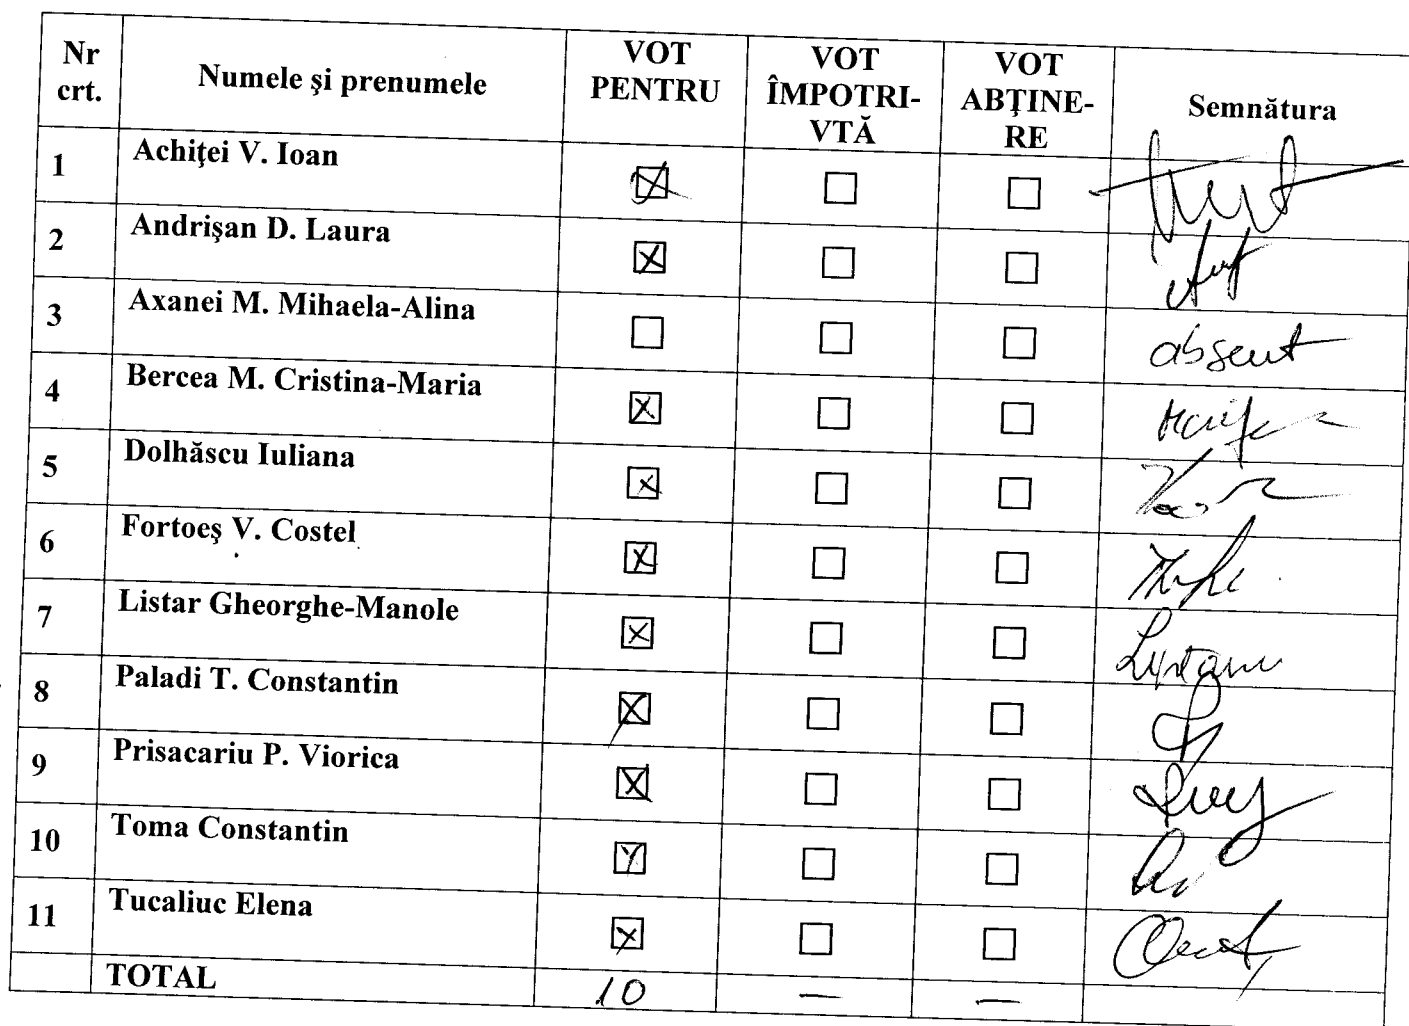 Nr crt. Numele şi prenumele VOT PENTRU VOT ÎMPOTRI-VTĂ VOT ABŢINE-RE Semnătura
1 Achiţei V. Ioan
2 Andrişan D. Laura
3 Axanei M. Mihaela-Alina absent
4 Bercea M. Cristina-Maria
5 Dolhăscu Iuliana
6 Fortoeş V. Costel
7 Listar Gheorghe-Manole
8 Paladi T. Constantin
9 Prisacariu P. Viorica
10 Toma Constantin
11 Tucaliuc Elena
TOTAL 10 — —